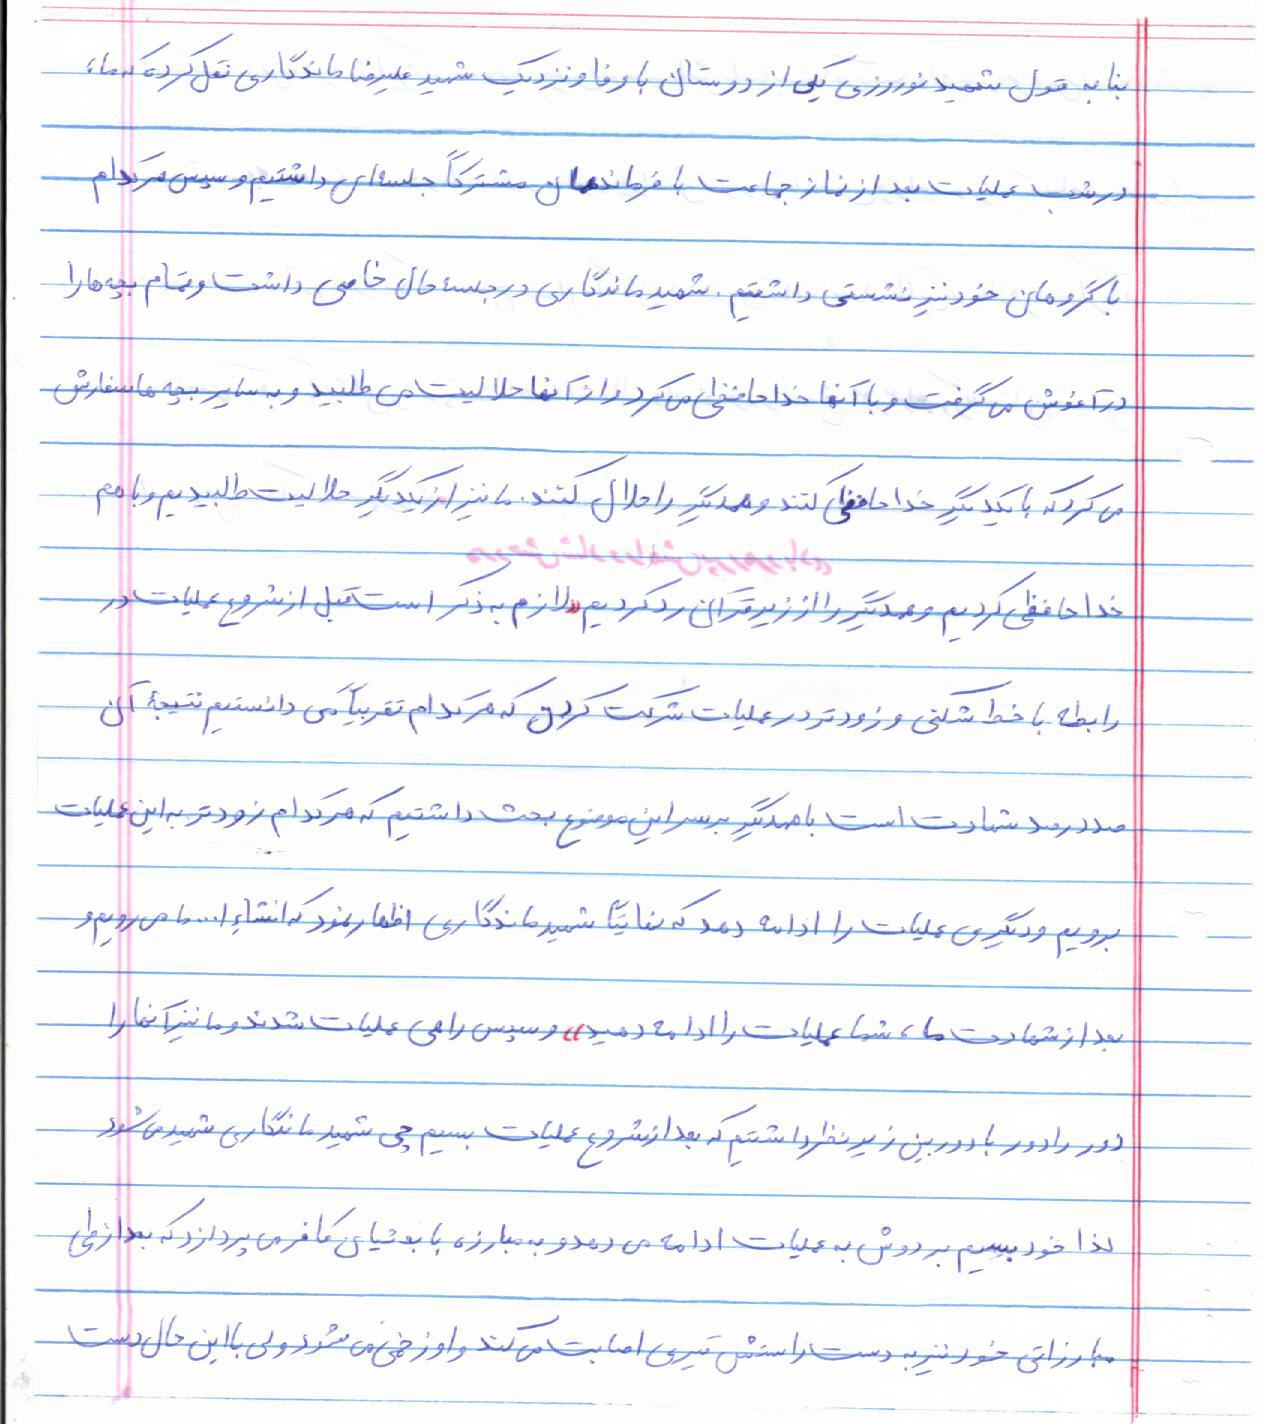 بنا به قول شهید نوروزی یکی از دوستان باوفا و نزدیک شهید علیرضا ماندگاری نقل کرده که ما،
در شب عملیات بعد از نماز جماعت با فرماندهان مشترکاً جلسه‌ای داشتیم و سپس هر کدام
با گروهان خود نیز نشستی داشتیم. شهید ماندگاری در جلسه حال خاصی داشت و تمام بچه ها را
در آغوش می گرفت و با آنها خداحافظی می کرد و از آنها حلالیت می طلبید و به سایر بچه ها سفارش
می کرد که با یکدیگر خداحافظی کنند و همدیگر را حلال کنند. ما نیز از یکدیگر حلالیت طلبیدیم و با هم
خداحافظی کردیم و همدیگر را از زیر قرآن رد کردیم» لازم به ذکر است قبل از شروع عملیات در
رابطه با خط شکنی و زودتر در عملیات شرکت کردن که هر کدام تقریباً می دانستیم نتیجهٔ آن
صد در صد شهادت است با همدیگر بر سر این موضوع بحث داشتیم که هر کدام زودتر به این عملیات
برویم و دیگری عملیات را ادامه دهد که نهایتاً شهید ماندگاری اظهار نمود که انشاء ا... ما می رویم و
بعد از شهادت ما، شما عملیات را ادامه دهید» و سپس راهی عملیات شدند و ما نیز آنها را
دور را دور با دوربین زیر نظر داشتیم که بعد از شروع عملیات بسیم چی شهید ماندگاری شهید می شود
لذا خود بیسیم بر دوش به عملیات ادامه می دهد و به مبارزه با بعثیای کافر می پردازد که بعد از طی
مبارزاتی خود نیز به دست راستش تیری اصابت می کند و او زخمی می شود ولی با این حال دست